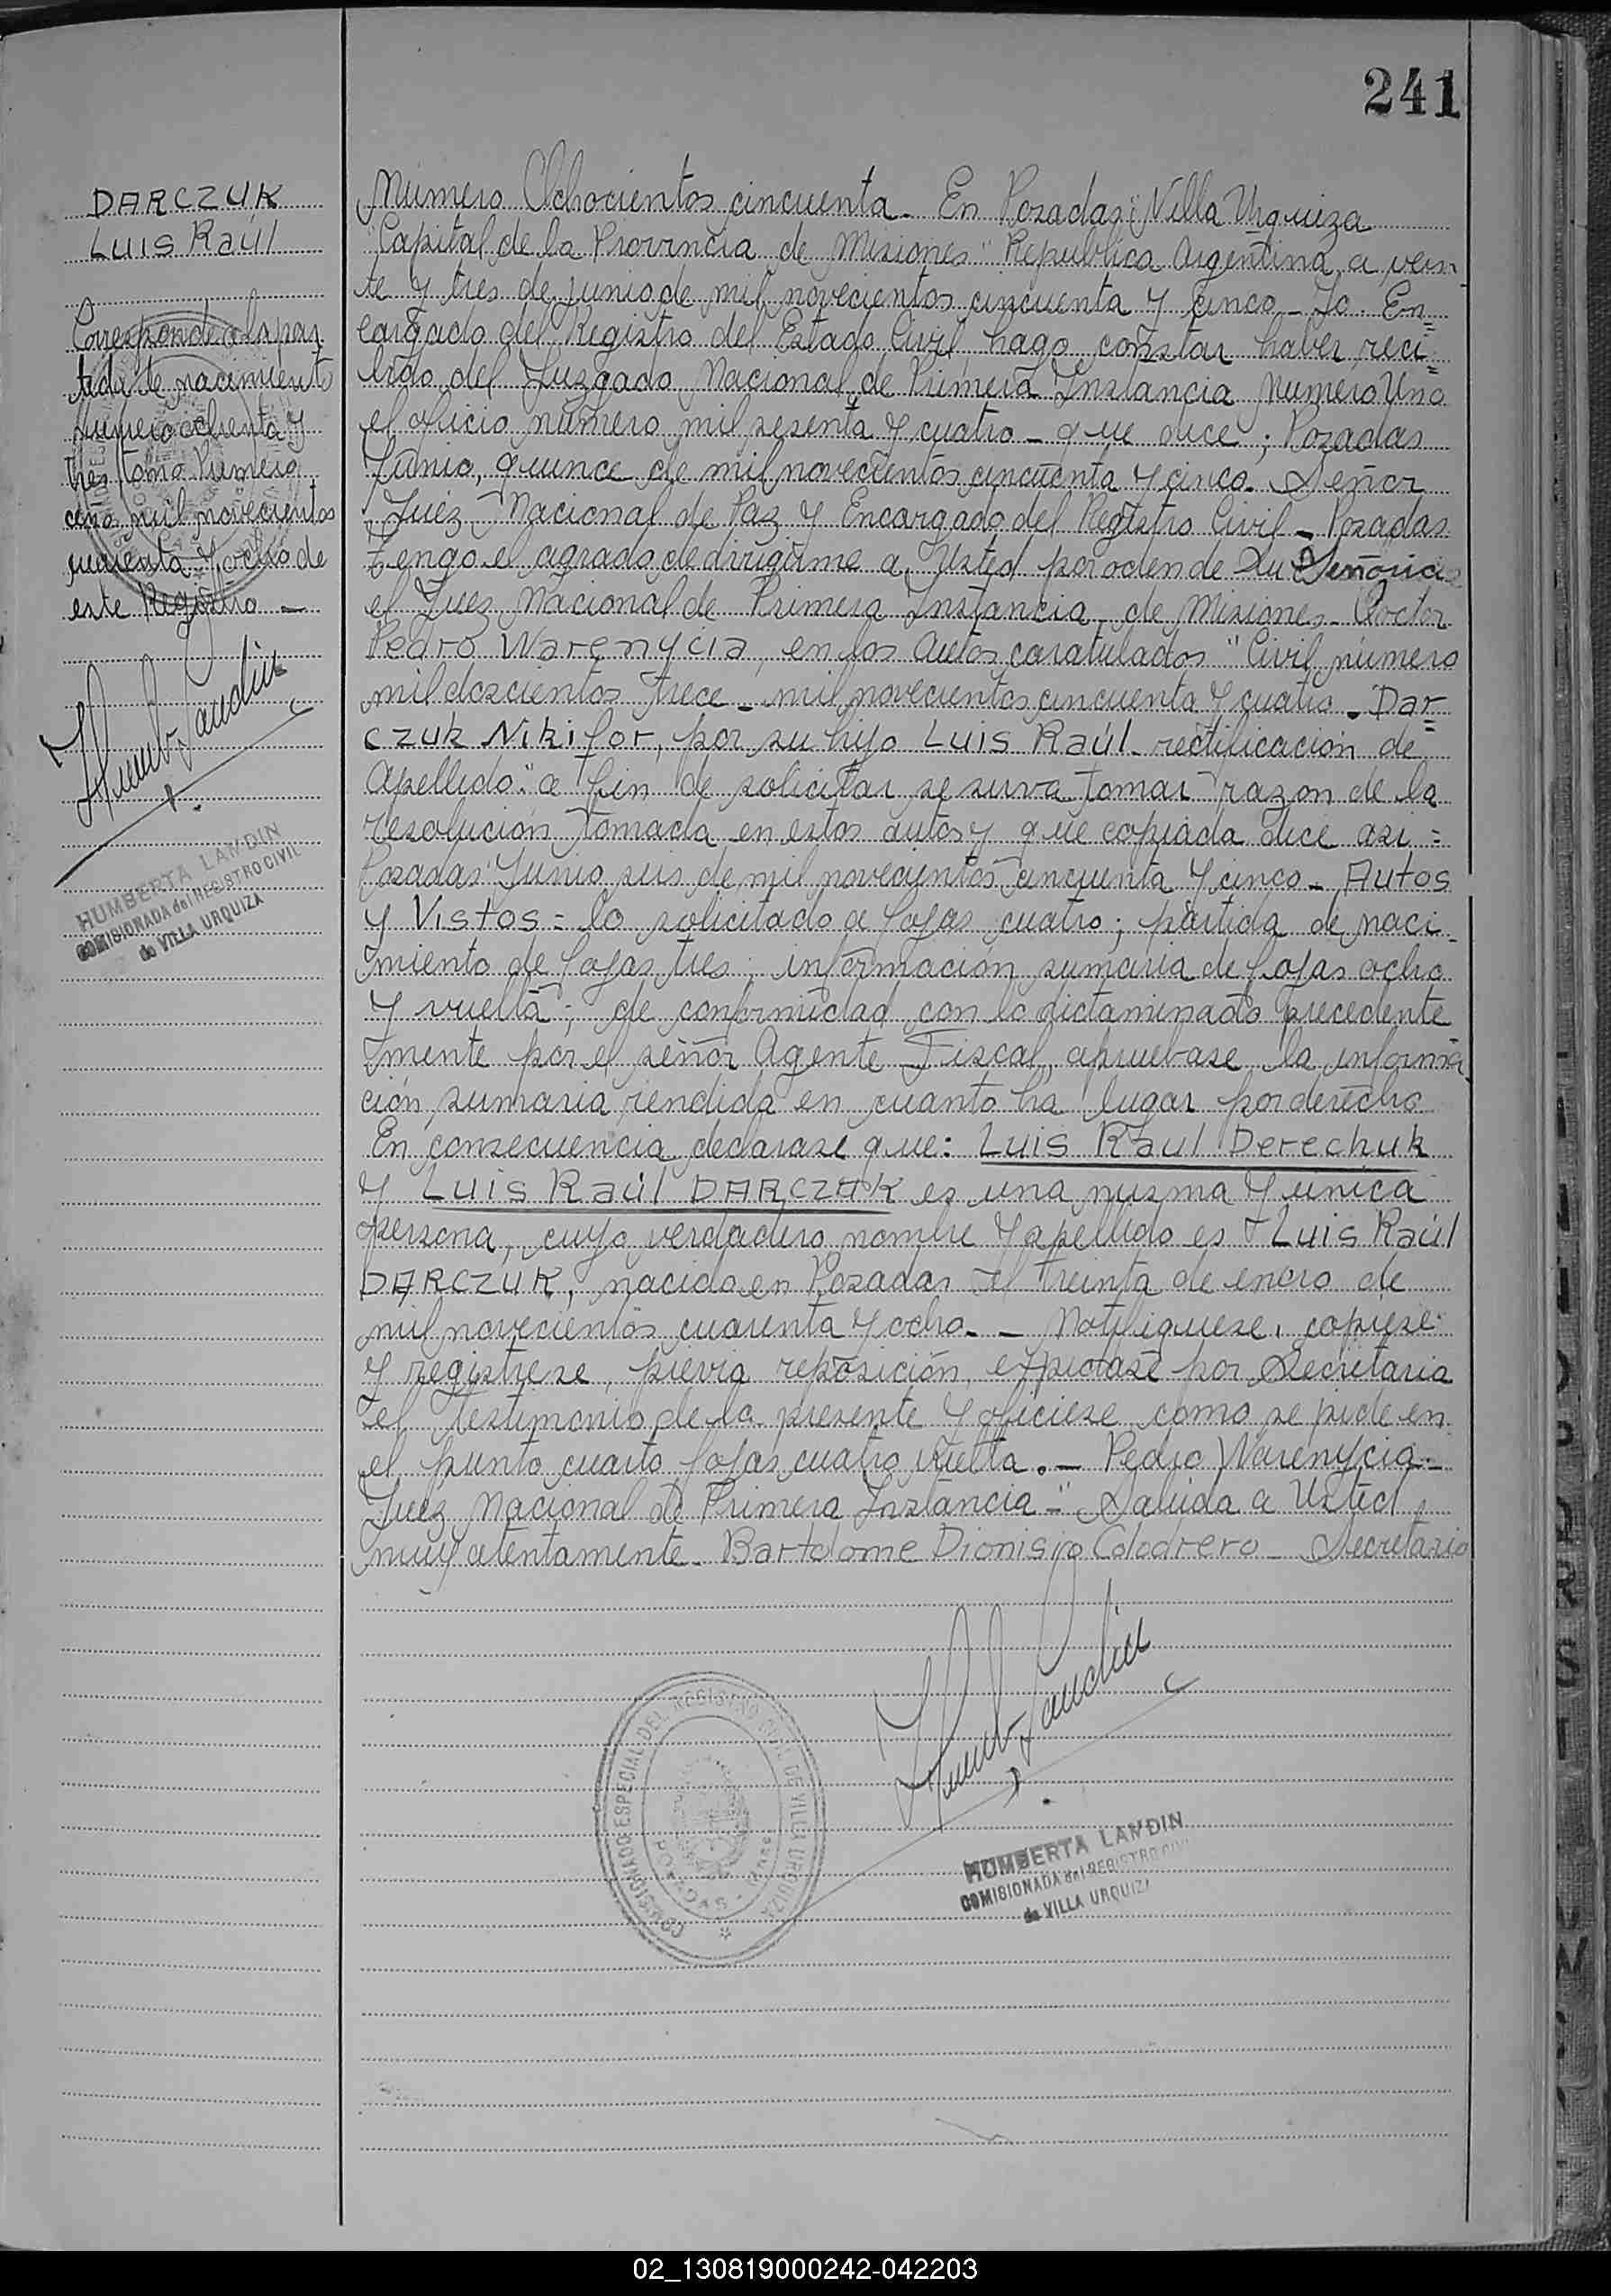 241
DARCZUK
LUIS RAÚL
Corresponde a la par
tida de nacimiento
número ochenta y
tres tomo Primero
mil novecientos
cuarenta y ocho de
este Registro —
HUMBERTA LANDIN
COMISIONADA del REGISTRO CIVIL
de VILLA URQUIZA
Número Ochocientos cincuenta. En Posadas "Villa Urquiza
Capital de la Provincia de Misiones" República Argentina, a vein-
te y tres de junio de mil novecientos cincuenta y cinco - Yo. En=
cargado del Registro del Estado Civil, hago constar haber reci-
bido del Juzgado Nacional de Primera Instancia Número Uno
el oficio número mil sesenta y cuatro - que dice; Posadas
Junio, quince de mil novecientos cincuenta y cinco. Señor
Juez Nacional de Paz y Encargado del Registro Civil - Posadas
Tengo el agrado de dirigirme a Usted por orden de Su Señoria
el Juez Nacional de Primera Instancia de Misiones - Doctor
Pedro Warenycia, en los autos caratulados "Civil número
mil doscientos trece - mil novecientos cincuenta y cuatro. Dar=
czuk Nikifor, por su hijo Luis Raúl - rectificación de
apellido." a fin de solicitar se sirva tomar razon de la
resolución tomada en estos autos y que copiada dice asi =
Posadas "Junio seis de mil novecientos cincuenta y cinco - Autos
y Vistos = lo solicitado a fojas cuatro; partida de naci-
miento de fojas tres; información sumaria de fojas ocho
y vuelta; de conformidad con lo dictaminado precedente
mente por el señor Agente Fiscal, apruebase la informa
ción sumaria rendida en cuanto ha lugar por derecho
En consecuencia declarase que: Luis Raul Derechuk
y Luis Raúl DARCZAK es una misma y unica
persona, cuyo verdadero nombre y apellido es Luis Raúl
DARCZUK, nacido en Posadas el treinta de enero de
mil novecientos cuarenta y ocho. - Notifiquese, copiese
y registrese, previa reposición, expidase por Secretaria
el testimonio de la presente y oficiese como se pide en
el punto cuarto fojas cuatro vuelta. - Pedro Warenycia -
Juez Nacional de Primera Instancia -" Saluda a Usted
muy atentamente. Bartolome Dionisio Colodrero - Secretario
COMISIONADO ESPECIAL DEL REGISTRO CIVIL DE VILLA URQUIZA
POSADAS
HUMBERTA LANDIN
COMISIONADA del REGISTRO CIVIL
de VILLA URQUIZA
02_130819000242-042203